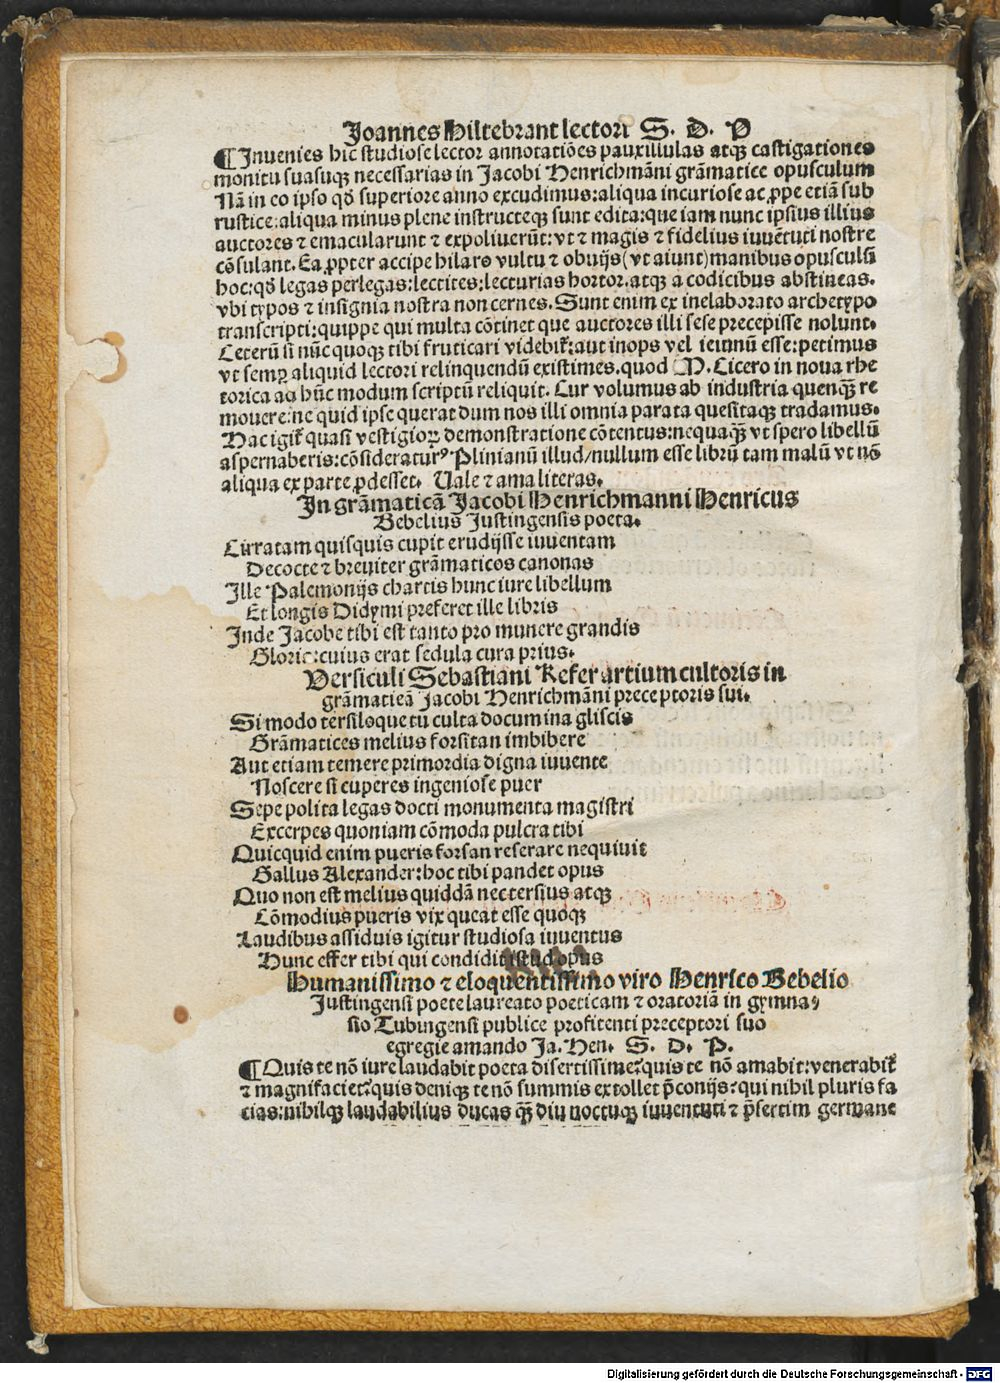 Joannes Hiltebrant lectori S. D. P
¶Inuenies hic studiose lector annotatiōes pauxillulas atqꝫ castigationes
monitu suasuqꝫ necessarias in Jacobi Henrichmāni grāmatice opusculum
Nā in eo ipso qḋ superiore anno excudimus: aliqua incuriose ac ꝓpe etiā sub
rustice: aliqua minus plene instructeqꝫ sunt edita: que iam nunc ipsius illius
auctores ⁊ emacularunt ⁊ expoliuerūt: vt ⁊ magis ⁊ fidelius iuuētuti nostre
cōsulant. Ea ꝓpter accipe hilaro vultu ⁊ obuijs (vt aiunt) manibus opusculū
hoc: qḋ legas perlegas: lectites: lecturias hortor. atqꝫ a codicibus abstineas.
vbi typos ⁊ insignia nostra non cernes. Sunt enim ex inelaborato archetypo
transcripti: quippe qui multa cōtinet que auctores illi sese precepisse nolunt.
Ceterū si nūc quoqꝫ tibi fruticari videbit̃: aut inops vel ieiunū esse: petimus
vt semꝑ aliquid lectori relinquendū existimes. quod M. Cicero in noua rhe
torica ad hūc modum scriptū reliquit. Cur volumus ab industria quenqꝫ̃ re
mouere: ne quid ipse querat dum nos illi omnia parata quesitaqꝫ tradamus.
Hac igit̃ quasi vestigioꝝ demonstratione cōtentus: nequaqꝫ̃ vt spero libellū
aspernaberis: cōsideraturꝰ Plinianū illud/ nullum esse librū tam malū vt nō
aliqua ex parte ꝓdesset. Vale ⁊ ama literas.
In grāmaticā Jacobi Henrichmanni Henricus
Bebelius Justingensis poeta.
Cirratam quisquis cupit erudijsse iuuentam
Decocte ⁊ breuiter grāmaticos canonas
Ille Palemonijs chartis hunc iure libellum
Et longis Didymi preferet ille libris
Inde Jacobe tibi est tanto pro munere grandis
Gloria: cuius erat sedula cura prius.
Versiculi Sebastiani Kefer artium cultoris in
grāmaticā Jacobi Henrichmāni preceptoris sui.
Si modo tersiloque tu culta documina gliscis
Grāmatices melius forsitan imbibere
Aut etiam temere primordia digna iuuente
Noscere si cuperes ingeniose puer
Sepe polita legas docti monumenta magistri
Excerpes quoniam cōmoda pulcra tibi
Quicquid enim pueris forsan reserare nequiuit
Gallus Alexander: hoc tibi pandet opus
Quo non est melius quiddā nec tersius atqꝫ
Cōmodius pueris vix queat esse quoqꝫ
Laudibus assiduis igitur studiosa iuuentus
Hunc effer tibi qui condidit istud opus
Humanissimo ⁊ eloquentissimo viro Henrico Bebelio
Justingensi poete laureato poeticam ⁊ oratoriā in gymna⸗
sio Tubingensi publice profitenti preceptori suo
egregie amando Ja. Hen. S. D. P.
¶Quis te nō iure laudabit poeta disertissime? quis te nō amabit: venerabit̃
⁊ magnifaciet? quis deniqꝫ te nō summis extollet p̄conijs? qui nihil pluris fa
cias: nihilqꝫ laudabilius ducas qꝫ̃ diu noctuqꝫ iuuentuti ⁊ p̄sertim germane
Digitalisierung gefördert durch die Deutsche Forschungsgemeinschaft - DFG